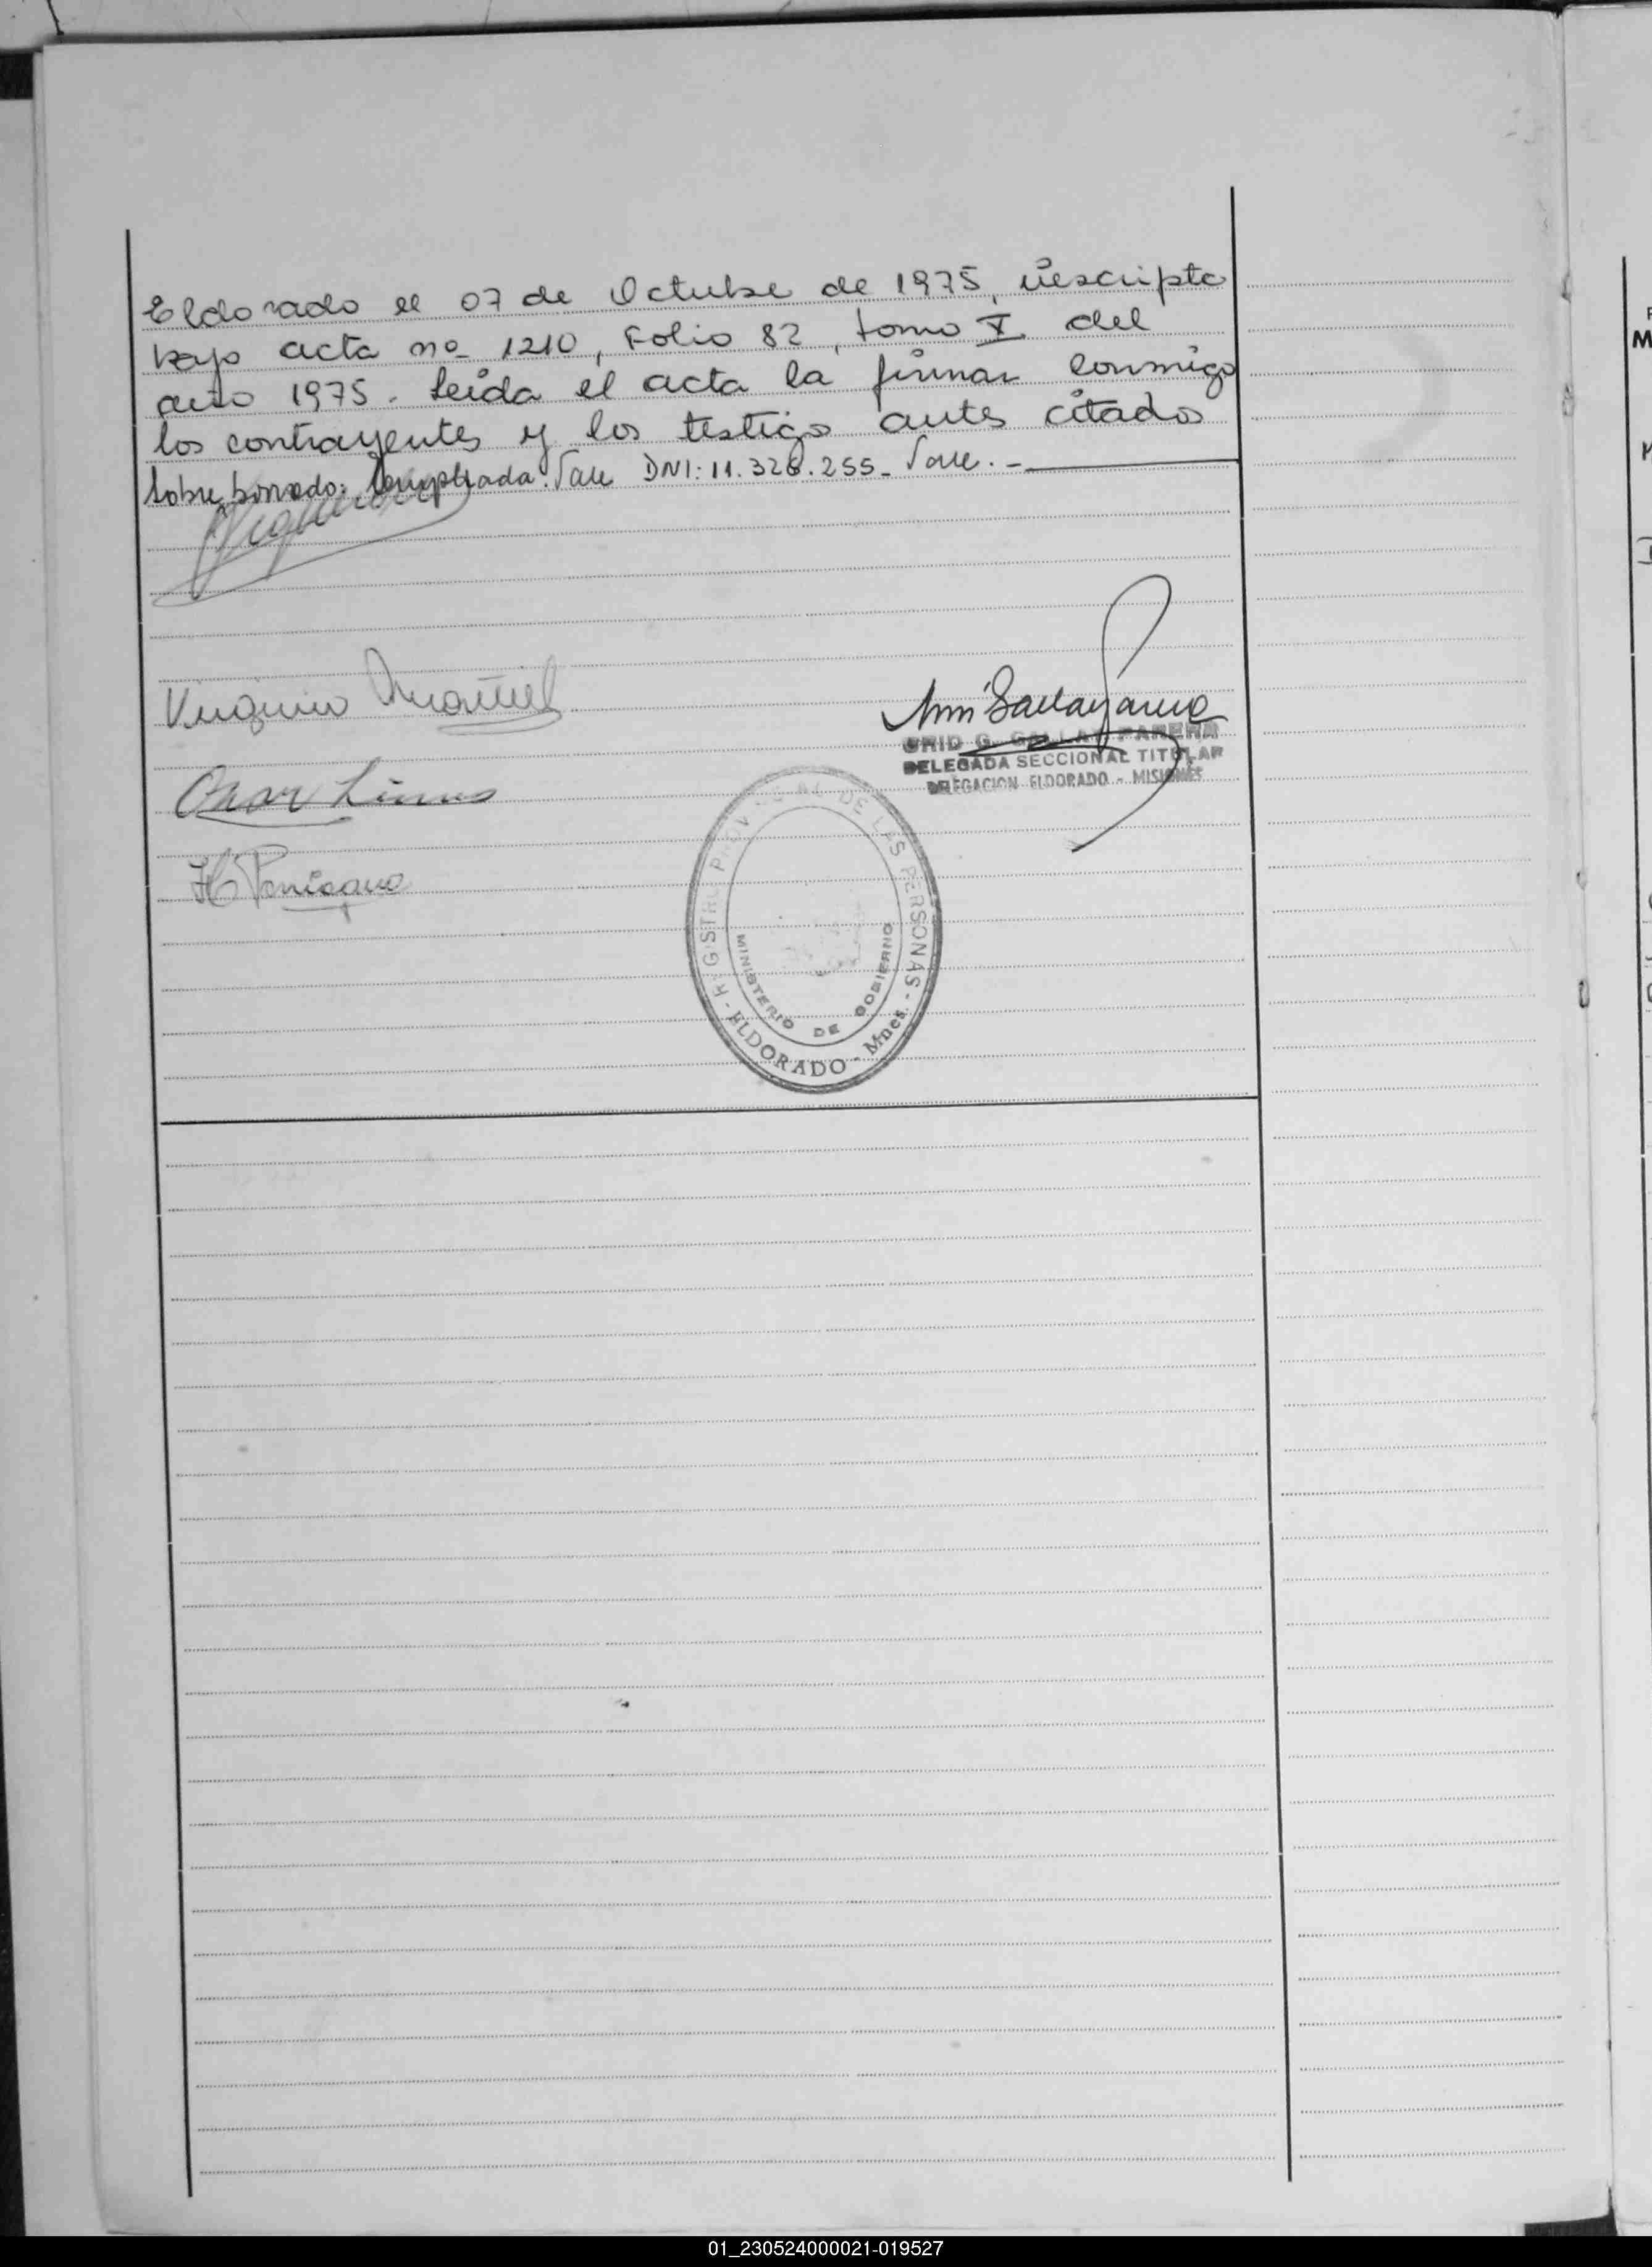 Eldorado el 07 de Octubre de 1975, inscripta
bajo acta nº 1210, Folio 82, tomo V del
año 1975. Leída el acta la firman conmigo
los contrayentes y los testigo antes citados
Sobre borrado: Cumpliada: Vale DNI: 11.328.255- Vale.-
Oscar
DELEGADA SECCIONAL TITULAR
DELEGACION ELDORADO - MISIONES
REGISTRO PROVINCIAL DE LAS PERSONAS - ELDORADO - Mnes. -
MINISTERIO DE GOBIERNO
01_230524000021-019527